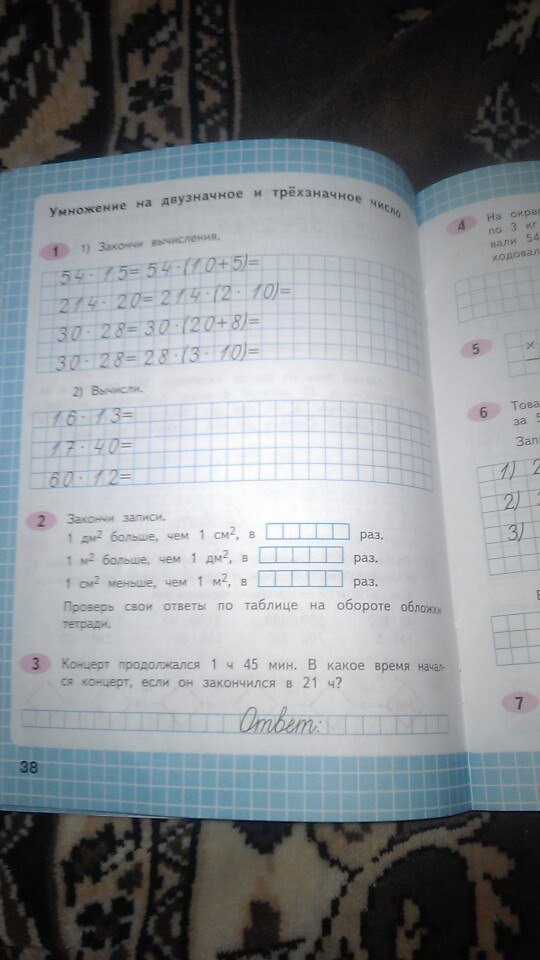 Умножение на двузначное и трёхзначное число
1 1) Закончи вычисления.
54 · 15 = 54 · (10+5)=
214 · 20 = 214 · (2 · 10)=
30 · 28 = 30 · (20+8)=
30 · 28 = 28 · (3 · 10)=
2) Вычисли.
16 · 13=
17 · 40=
60 · 12=
2 Закончи записи.
1 дм² больше, чем 1 см², в раз.
1 м² больше, чем 1 дм², в раз.
1 см² меньше, чем 1 м², в раз.
Проверь свои ответы по таблице на обороте обложки
тетради.
3 Концерт продолжался 1 ч 45 мин. В какое время начал-
ся концерт, если он закончился в 21 ч?
Ответ:
38
4 На
по 3 кг
вали 54
5 ×
6
за
1)
2)
3)
7